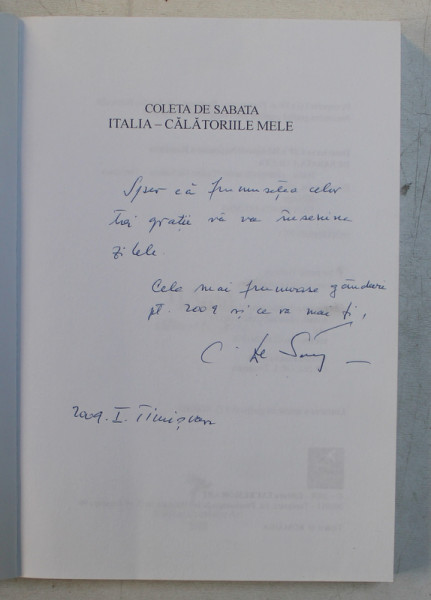 COLETA DE SABATA
ITALIA – CĂLĂTORIILE MELE
Sper că frumusețea celor
trei grații vă va însenina
zilele.
Cele mai frumoase gânduri
pt. 2009 și ce va mai fi,
C. de Sa
2009. I. Timișoara